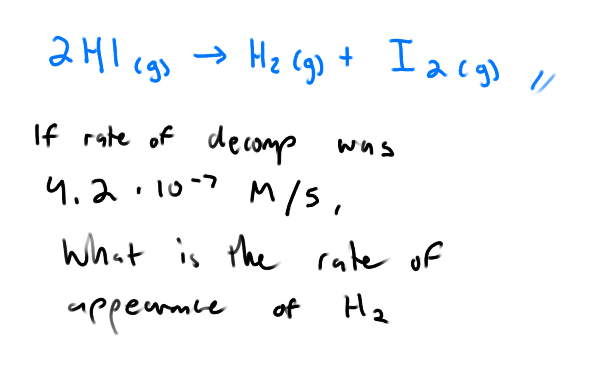 2HI (g) → H2 (g) + I2 (g) //
If rate of decomp was
4.2 · 10^-7 M/s,
What is the rate of
appearnce of H2